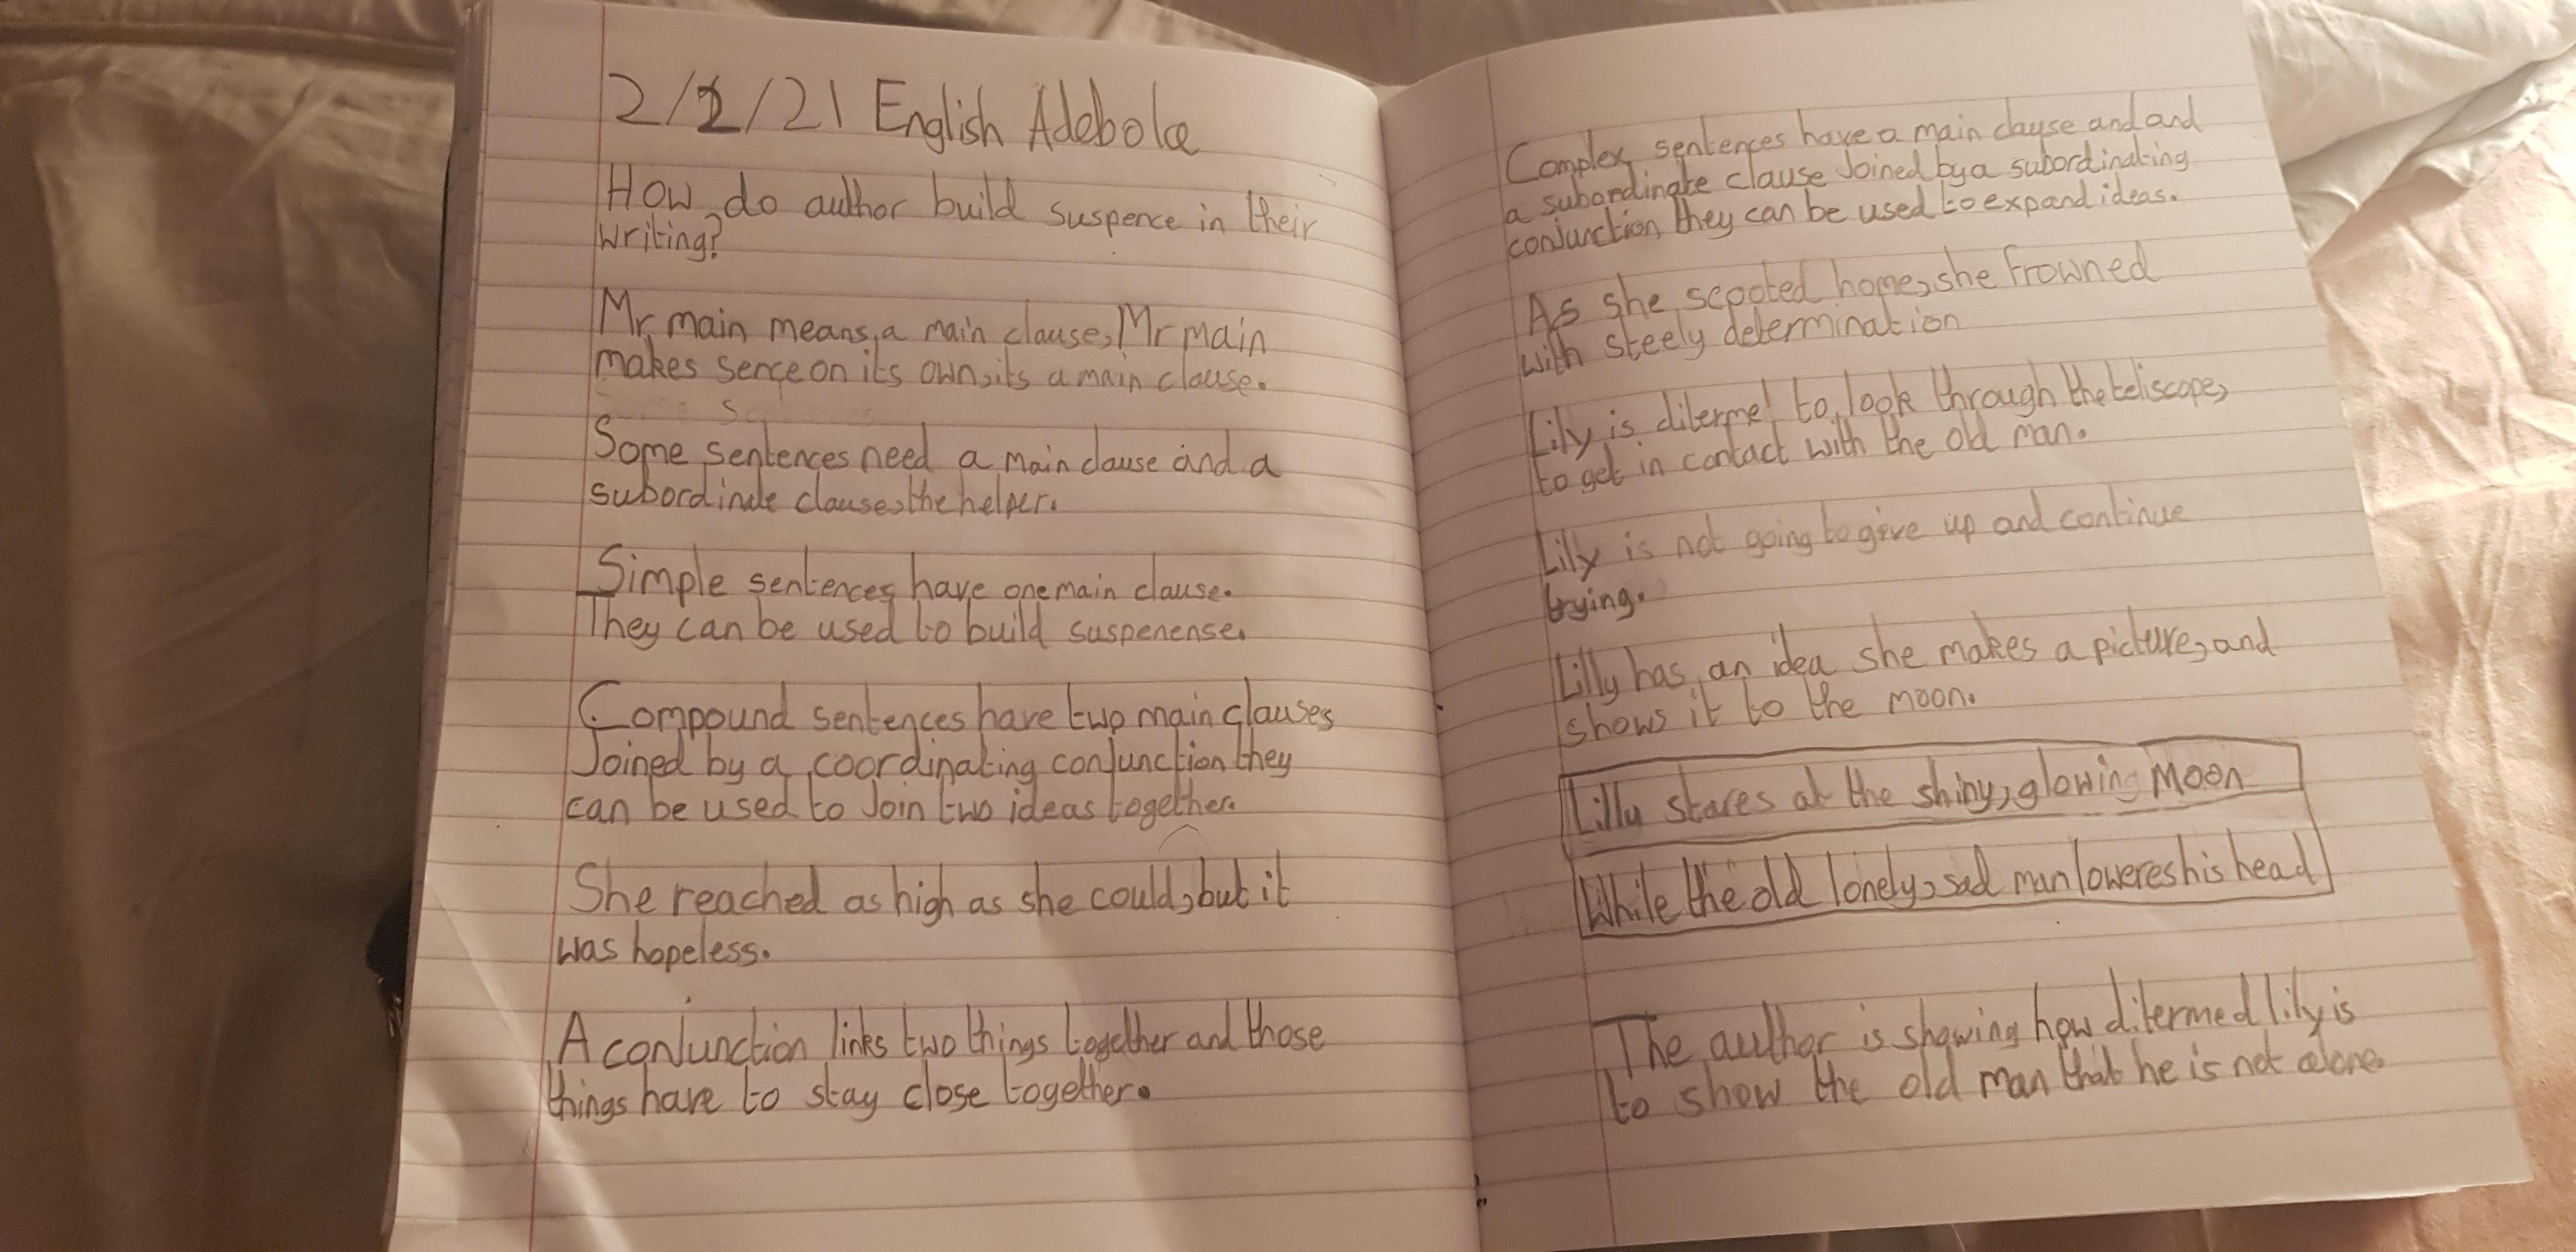 2/2/21 English Adebola
How do author build suspence in their
writing?
Mr main means a main clause, Mr main
makes sence on its own, its a main clause.
Some sentences need a main clause and a
subordinate clause, the helper.
Simple sentences have one main clause.
They can be used to build suspenense.
Compound sentences have two main clauses
Joined by a coordinating conjunction they
can be used to Join two ideas together.
She reached as high as she could, but it
was hopeless.
A conJunction links two things together and those
things have to stay close together.
Complex sentences have a main clause and and
a subordinate clause Joined by a subordinating
conjunction they can be used to expand ideas.
As she scooted home, she frowned
with steely determination
Lily is to look through the teliscope,
to get in contact with the old man.
Lily is not going to give up and continue
trying.
Lilly has an idea she makes a picture, and
shows it to the moon.
Lilly stares at the shiny, glowing Moon
While the old lonely, sad man loweres his head
The author is showing how ditermed lily is
to show the old man that he is not alone.